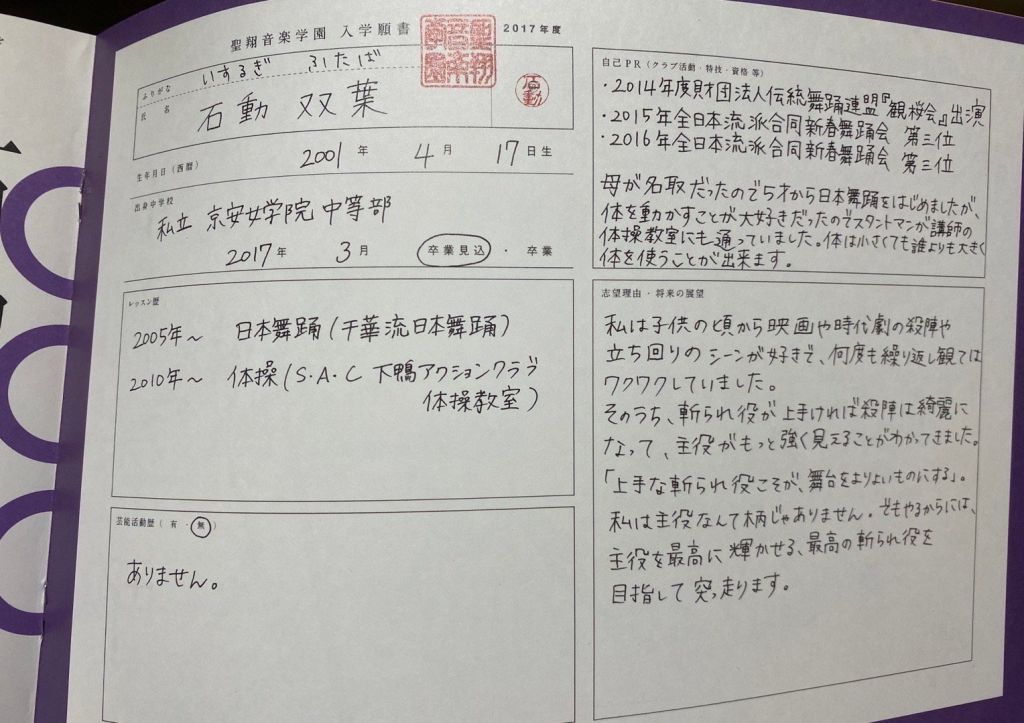 聖翔音楽学園 入学願書
2017年度
ふりがな いするぎ ふたば
氏名 石動 双葉
石動
生年月日(西暦) 2001年 4月 17日生
出身中学校
私立 京安女学院 中等部
2017年 3月 卒業見込 · 卒業
レッスン歴
2005年~ 日本舞踊(千華流日本舞踊)
2010年~ 体操(S.A.C 下鴨アクションクラブ
体操教室)
芸能活動歴(有 · 無)
ありません。
自己PR(クラブ活動・特技・資格 等)
・2014年度財団法人伝統舞踊連盟『観桜会』出演
・2015年全日本流派合同新春舞踊会 第三位
・2016年全日本流派合同新春舞踊会 第三位
母が名取だったので5才から日本舞踊をはじめましたが、
体を動かすことが大好きだったのでスタントマンが講師の
体操教室にも通っていました。体は小さくても誰よりも大きく
体を使うことが出来ます。
志望理由・将来の展望
私は子供の頃から映画や時代劇の殺陣や
立ち回りのシーンが好きで、何度も繰り返し観ては
ワクワクしていました。
そのうち、斬られ役が上手ければ殺陣は綺麗に
なって、主役がもっと強く見えることがわかってきました。
「上手な斬られ役こそが、舞台をよりよいものにする」。
私は主役なんて柄じゃありません。でもやるからには、
主役を最高に輝かせる、最高の斬られ役を
目指して突っ走ります。